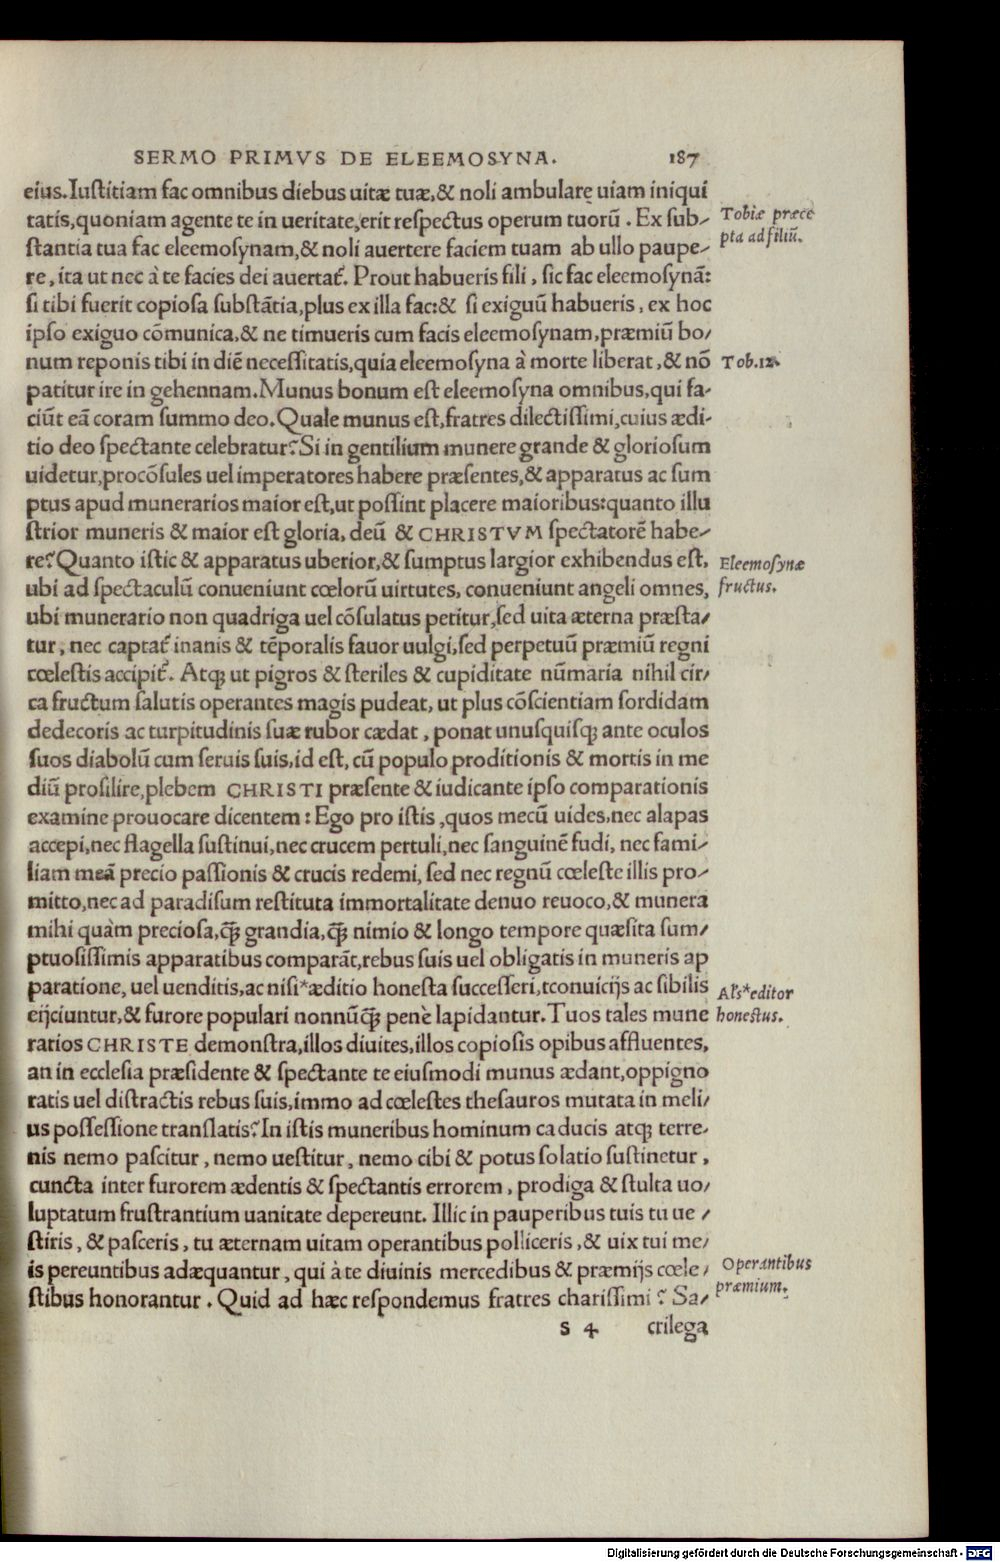 SERMO PRIMVS DE ELEEMOSYNA. 187
eius. Iuſtitiam fac omnibus diebus uitæ tuæ, & noli ambulare uiam iniqui
tatis, quoniam agente te in ueritate, erit reſpectus operum tuorũ. Ex ſub-
ſtantia tua fac eleemoſynam, & noli auertere faciem tuam ab ullo paupe-
re, ita ut nec à te facies dei auertat᷑. Prout habueris fili, ſic fac eleemoſynã:
ſi tibi fuerit copioſa ſubſtãtia, plus ex illa fac: & ſi exiguũ habueris, ex hoc
ipſo exiguo cõmunica, & ne timueris cum facis eleemoſynam, præmiũ bo-
num reponis tibi in diẽ neceſſitatis, quia eleemoſyna à morte liberat, & nõ
patitur ire in gehennam. Munus bonum eſt eleemoſyna omnibus, qui fa-
ciũt eã coram ſummo deo. Quale munus eſt, fratres dilectiſſimi, cuius ædi-
tio deo ſpectante celebratur? Si in gentilium munere grande & glorioſum
uidetur, procõſules uel imperatores habere præſentes, & apparatus ac ſum
ptus apud munerarios maior eſt, ut poſſint placere maioribus: quanto illu
ſtrior muneris & maior eſt gloria, deũ & CHRISTVM ſpectatorẽ habe-
re? Quanto iſtic & apparatus uberior, & ſumptus largior exhibendus eſt,
ubi ad ſpectaculũ conueniunt cœlorũ uirtutes, conueniunt angeli omnes,
ubi munerario non quadriga uel cõſulatus petitur, ſed uita æterna præſta-
tur, nec captat᷑ inanis & tẽporalis fauor uulgi, ſed perpetuũ præmiũ regni
cœleſtis accipit᷑. Atq; ut pigros & ſteriles & cupiditate nũmaria nihil cir-
ca fructum ſalutis operantes magis pudeat, ut plus cõſcientiam ſordidam
dedecoris ac turpitudinis ſuæ rubor cædat, ponat unuſquiſq; ante oculos
ſuos diabolũ cum ſeruis ſuis, id eſt, cũ populo proditionis & mortis in me
diũ proſilire, plebem CHRISTI præſente & iudicante ipſo comparationis
examine prouocare dicentem: Ego pro iſtis, quos mecũ uides, nec alapas
accepi, nec flagella ſuſtinui, nec crucem pertuli, nec ſanguinẽ fudi, nec fami-
liam meã precio paſſionis & crucis redemi, ſed nec regnũ cœleſte illis pro-
mitto, nec ad paradiſum reſtituta immortalitate denuo reuoco, & munera
mihi quàm precioſa, q̃ꝫ grandia, q̃ꝫ nimio & longo tempore quæſita ſum-
ptuoſiſſimis apparatibus comparãt, rebus ſuis uel obligatis in muneris ap
paratione, uel uenditis, ac niſi*æditio honeſta ſucceſſerit, conuicijs ac ſibilis
eijciuntur, & furore populari nonnũq̃ꝫ penè lapidantur. Tuos tales mune
rarios CHRISTE demonſtra, illos diuites, illos copioſis opibus affluentes,
an in eccleſia præſidente & ſpectante te eiuſmodi munus ædant, oppigno
ratis uel diſtractis rebus ſuis, immo ad cœleſtes theſauros mutata in meli-
us poſſeſſione tranſlatis? In iſtis muneribus hominum caducis atq; terre-
nis nemo paſcitur, nemo ueſtitur, nemo cibi & potus ſolatio ſuſtinetur,
cuncta inter furorem ædentis & ſpectantis errorem, prodiga & ſtulta uo-
luptatum fruſtrantium uanitate depereunt. Illic in pauperibus tuis tu ue-
ſtiris, & paſceris, tu æternam uitam operantibus polliceris, & uix tui me-
is pereuntibus adæquantur, qui à te diuinis mercedibus & præmijs cœle-
ſtibus honorantur. Quid ad hæc reſpondemus fratres chariſſimi? Sa-
S 4 crilega
Tobiæ præce
pta ad filiũ.
Tob.12.
Eleemoſynæ
fructus.
Als*editor
honeſtus.
Operantibus
præmium.
Digitalisierung gefördert durch die Deutsche Forschungsgemeinschaft - DFG